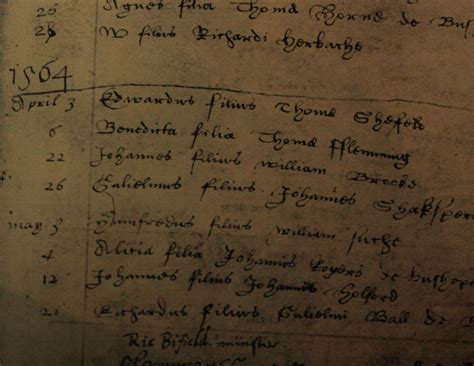 20 Agnes filia Thomd Horne de
28 W filius Richardi Herbache
1564
April 3 Edwardus filius Thomd Shefeld
6 Benedicta filia Thomd fflemming
22 Johannes filius William Brooke
26 Gulielmus filius Johannes Shakspere
may. 3 filius william
4 Alicia filia Johannis Rogers de
12 Johannes filius Johannis Holford
21 Richardus filius Gulielmi Ball de
Ric Bifield minister